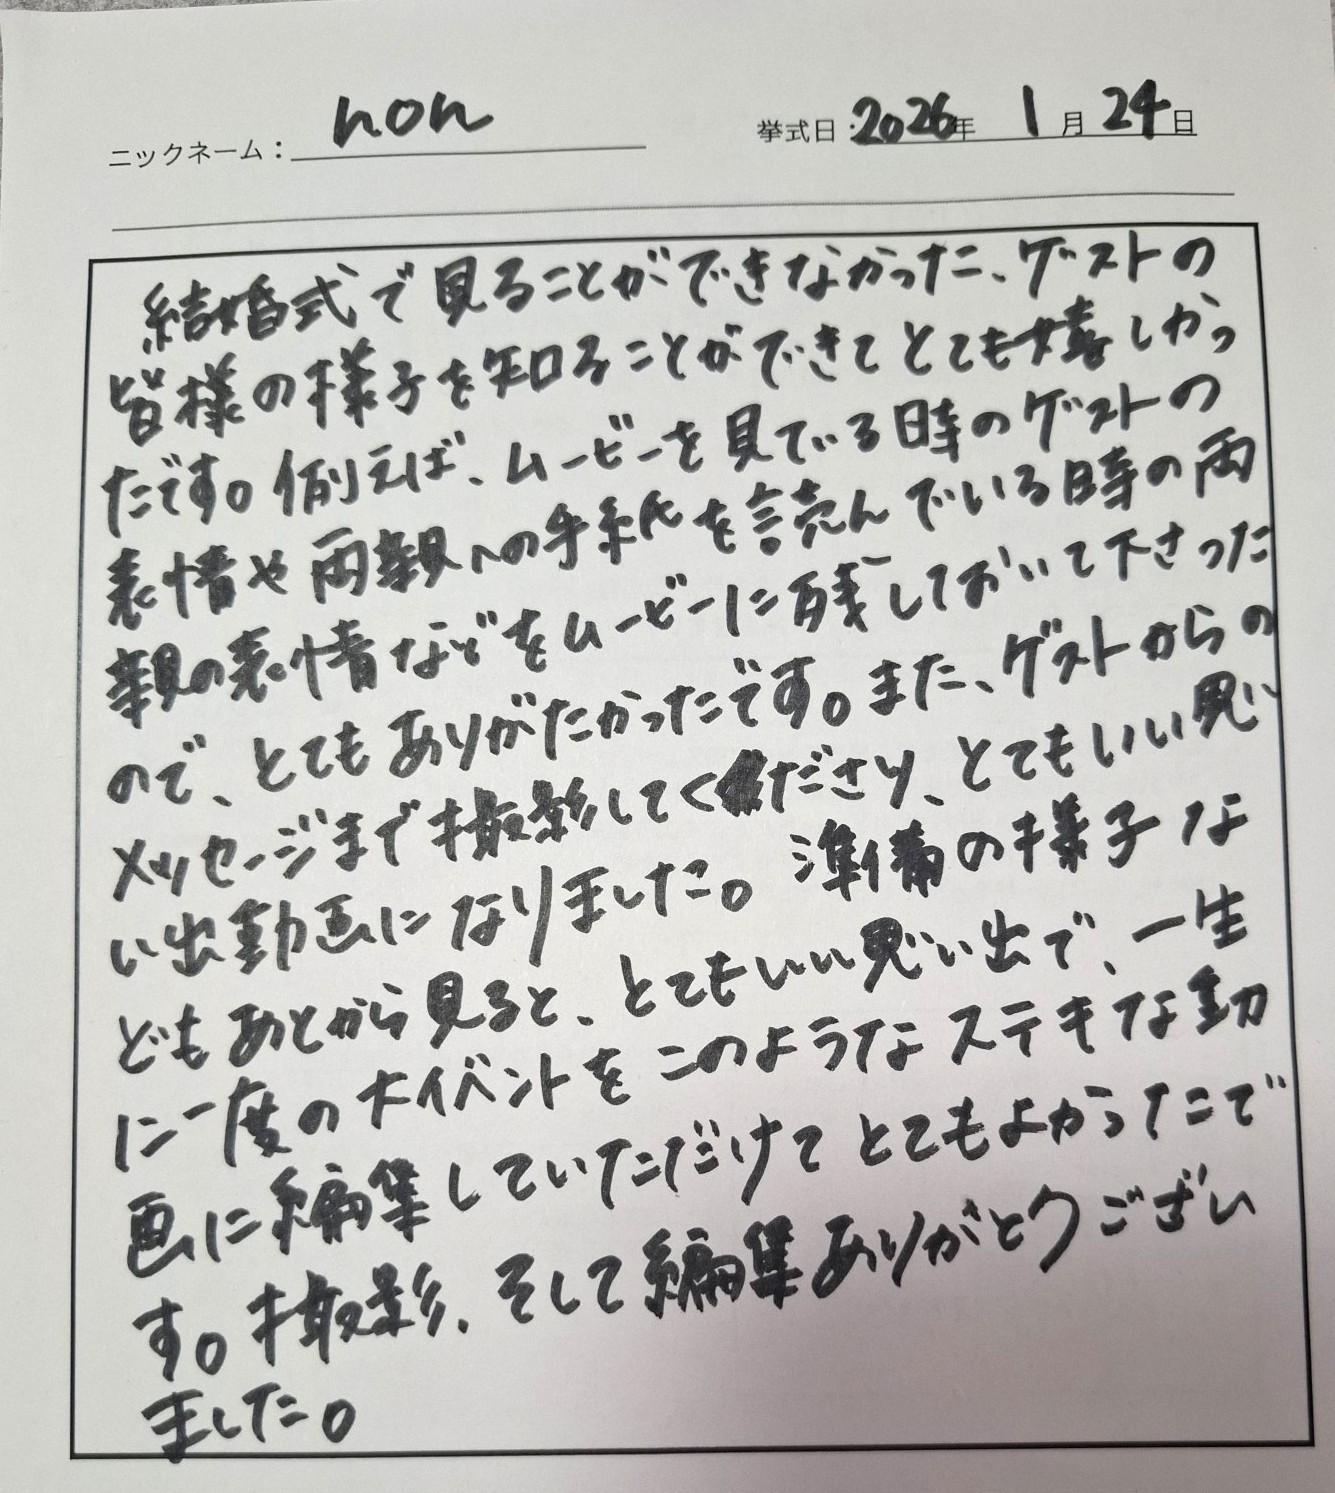 ニックネーム：non
挙式日：2026年 1月 24日
結婚式で見ることができなかった、ゲストの
皆様の様子を知ることができてとても嬉しかっ
たです。例えば、ムービーを見ている時のゲストの
表情や両親への手紙を読んでいる時の両
親の表情などをムービーに残しておいて下さった
ので、とてもありがたかったです。また、ゲストからの
メッセージまで撮影してくださり、とてもいい思
い出動画になりました。準備の様子な
どもあとから見ると、とてもいい思い出で、一生
に一度の大イベントをこのようなステキな動
画に編集していただけてとてもよかったで
す。撮影、そして編集ありがとうござい
ました。